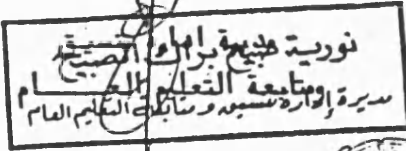 نورية صبيح براك الصبيح
ومتابعة التعليم العـــــام
مديرة إدارة تنسيق ومتابعة التعليم العام